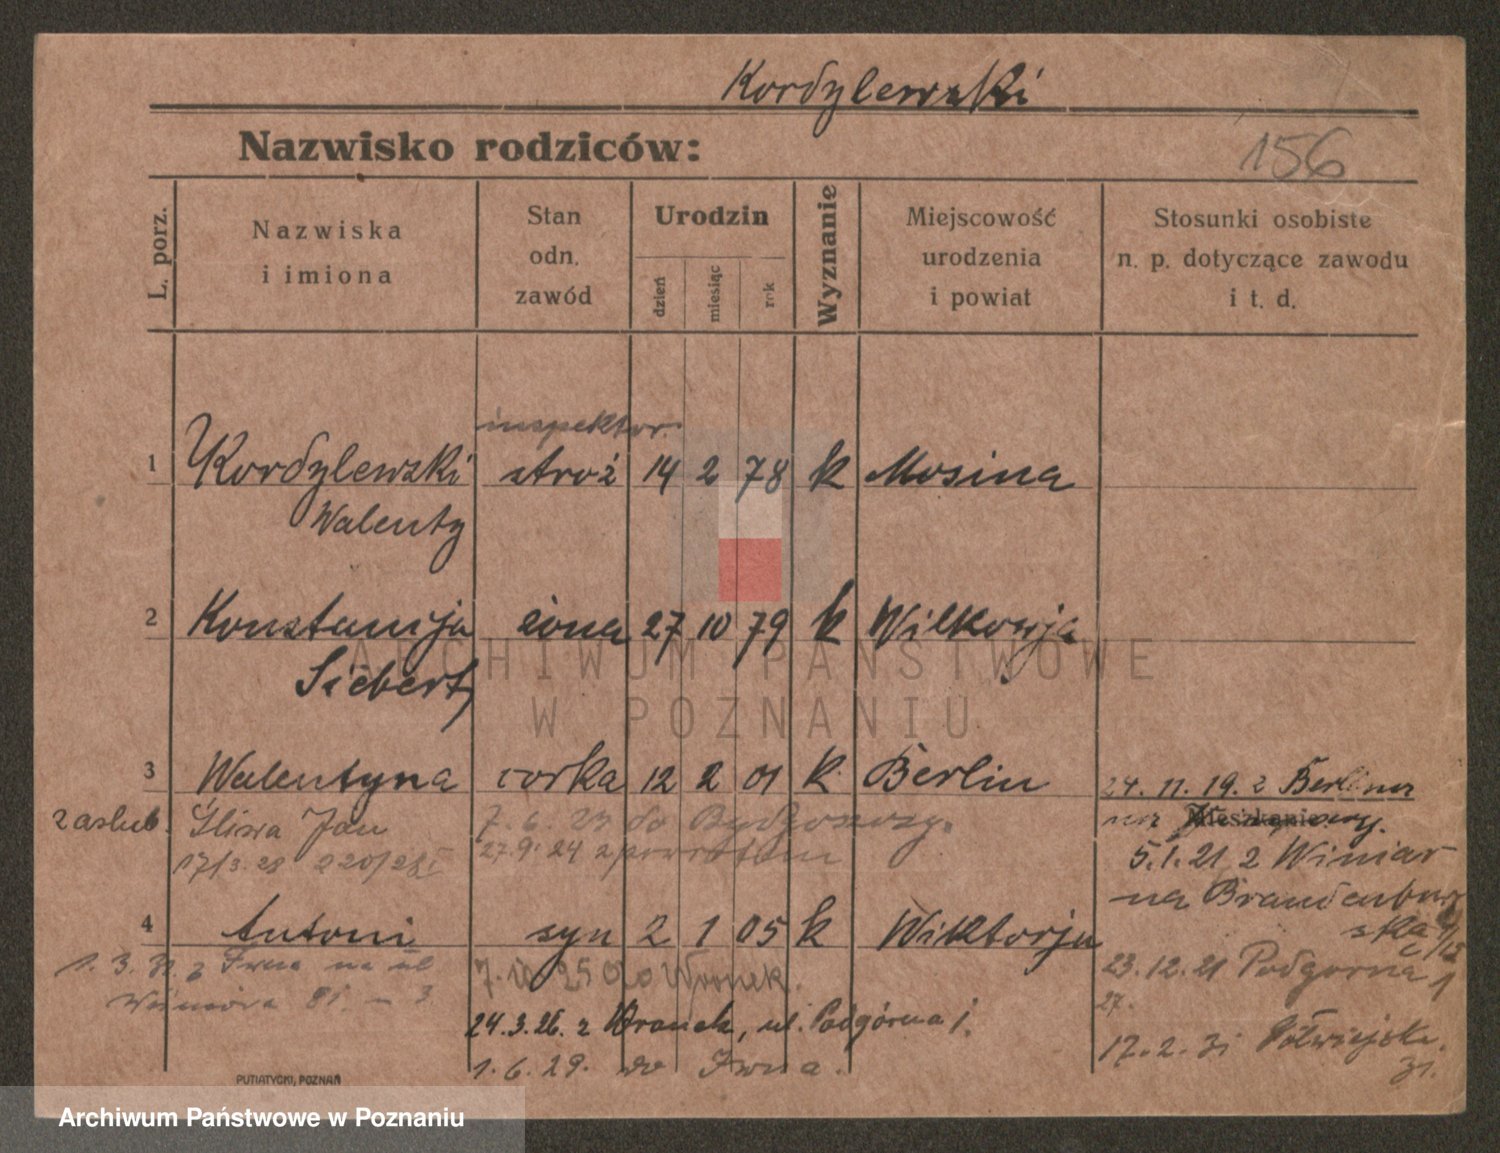 Kordylewski
Nazwisko rodziców:
156
L. porz.
Nazwiska
i imiona
Stan
odn.
zawód
Urodzin
dzień
miesiąc
rok
Wyznanie
Miejscowość
urodzenia
i powiat
Stosunki osobiste
n. p. dotyczące zawodu
i t. d.
inspektor.
1 Kordylewski stróż 14 2 78 k Mosina
Walenty
2 Konstancja żona 27 10 79 k Wilkowyja
Siebert
ARCHIWUM PAŃSTWOWE
W POZNANIU
3 Walentyna córka 12 2 01 k Berlin
24. 11. 19. z Berlina
zaślub. Śliwa Jan 7. 6. 23 do Bydgoszczy.
na
Mieszkanie
17/3.28 220/28 27.9. 24 z powrotem
5.1.21 z Winiar
na Brandenbur
ska
4 Antoni syn 2 1 05 k Wiktorja
1. 3. 31. z Iwna na ul
23.12.21 Podgorna 1
27.
24.3.26. z Wronek, ul. Podgórna 1.
17. 2. 31 Półwiejska
31.
1.6.29. do Iwna.
PUTIATYCKI, POZNAŃ
Archiwum Państwowe w Poznaniu